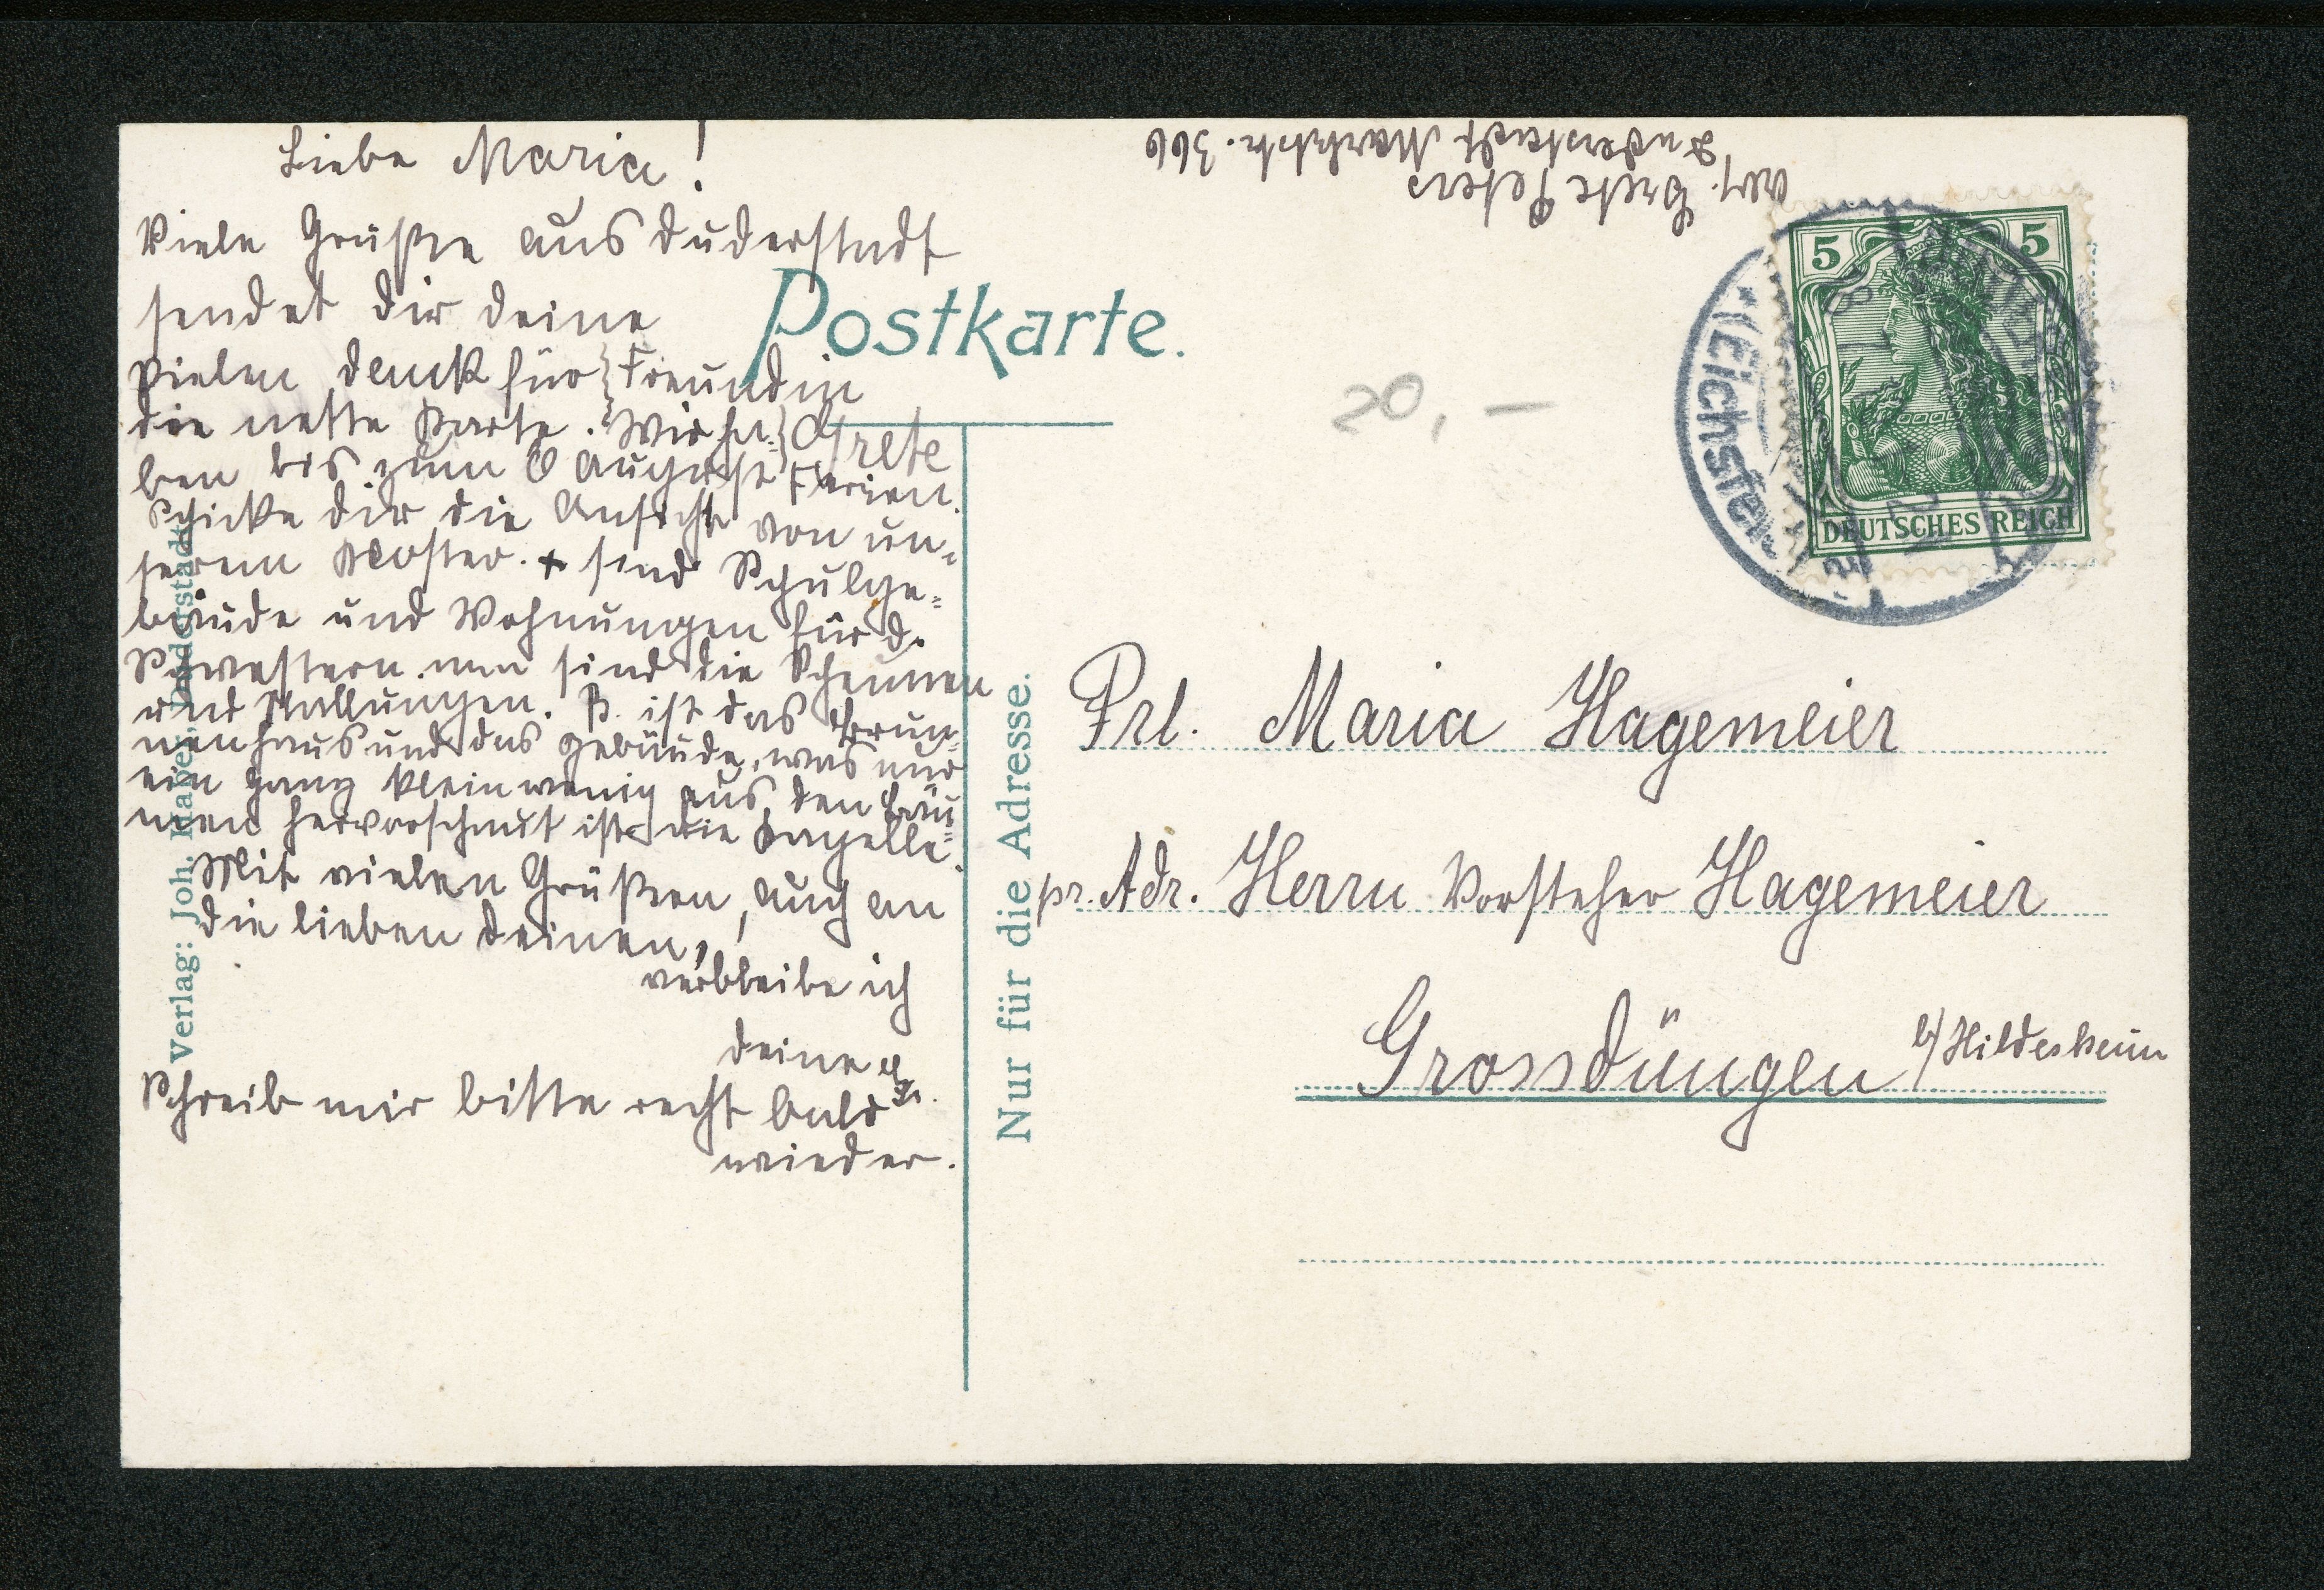 Liebe Maria!
Viele Grüßse aus Duderstadt
sendet dir deine
Freundin
Grete
vielen Dank für
die nette Karte. Wir ha-
ben bis zum 6 August Ferien.
Schicke dir die Ansicht von un-
serem Kloster. + sind Schulge-
bäude und Wohnungen für d.
Schwestern. sind die Scheunen
und Stallungen. B. ist das Brun-
nenhaus und das Gebäude, was nur
ein ganz klein wenig aus den Bäu-
men hervorschaut ist die Kapelle.
Mit vielen Grüßsen, auch an
die lieben Deinen,
verbleibe ich
deine Gr.
Schreib mir bitte recht bald
wieder.
Verlag: Joh. Duderstadt
Postkarte.
Nur für die Adresse.
Grete Peters
Duderstadt Marktstr. 366
20,-
5 5
DEUTSCHES REICH
(Eichsfeld
Frl. Maria Hagemeier
pr. Adr. Herrn Vorsteher Hagemeier
Grossdüngen b/Hildesheim